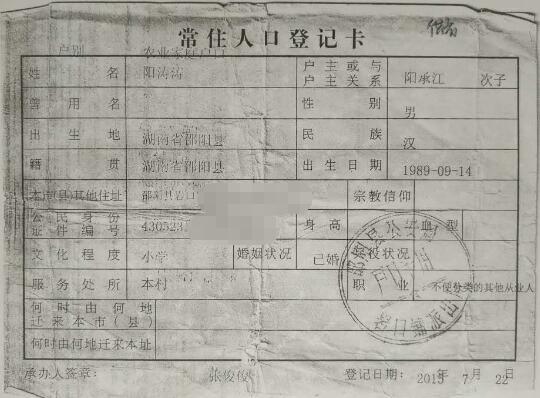 常住人口登记卡
户别 农业家庭户口
姓名 阳涛涛 户主或与户主关系 阳承江 次子
曾用名 性别 男
出生地 湖南省邵阳县 民族 汉
籍贯 湖南省邵阳县 出生日期 1989-09-14
本市(县)其他住址 邵阳县岩口 宗教信仰
公民身份证件编号 430523 身高 血型
文化程度 小学 婚姻状况 已婚 兵役状况
服务处所 本村 职业 不便分类的其他从业人
何时由何地迁来本市(县)
何时由何地迁来本址
承办人签章: 张俊俊 登记日期: 2015年7月22日